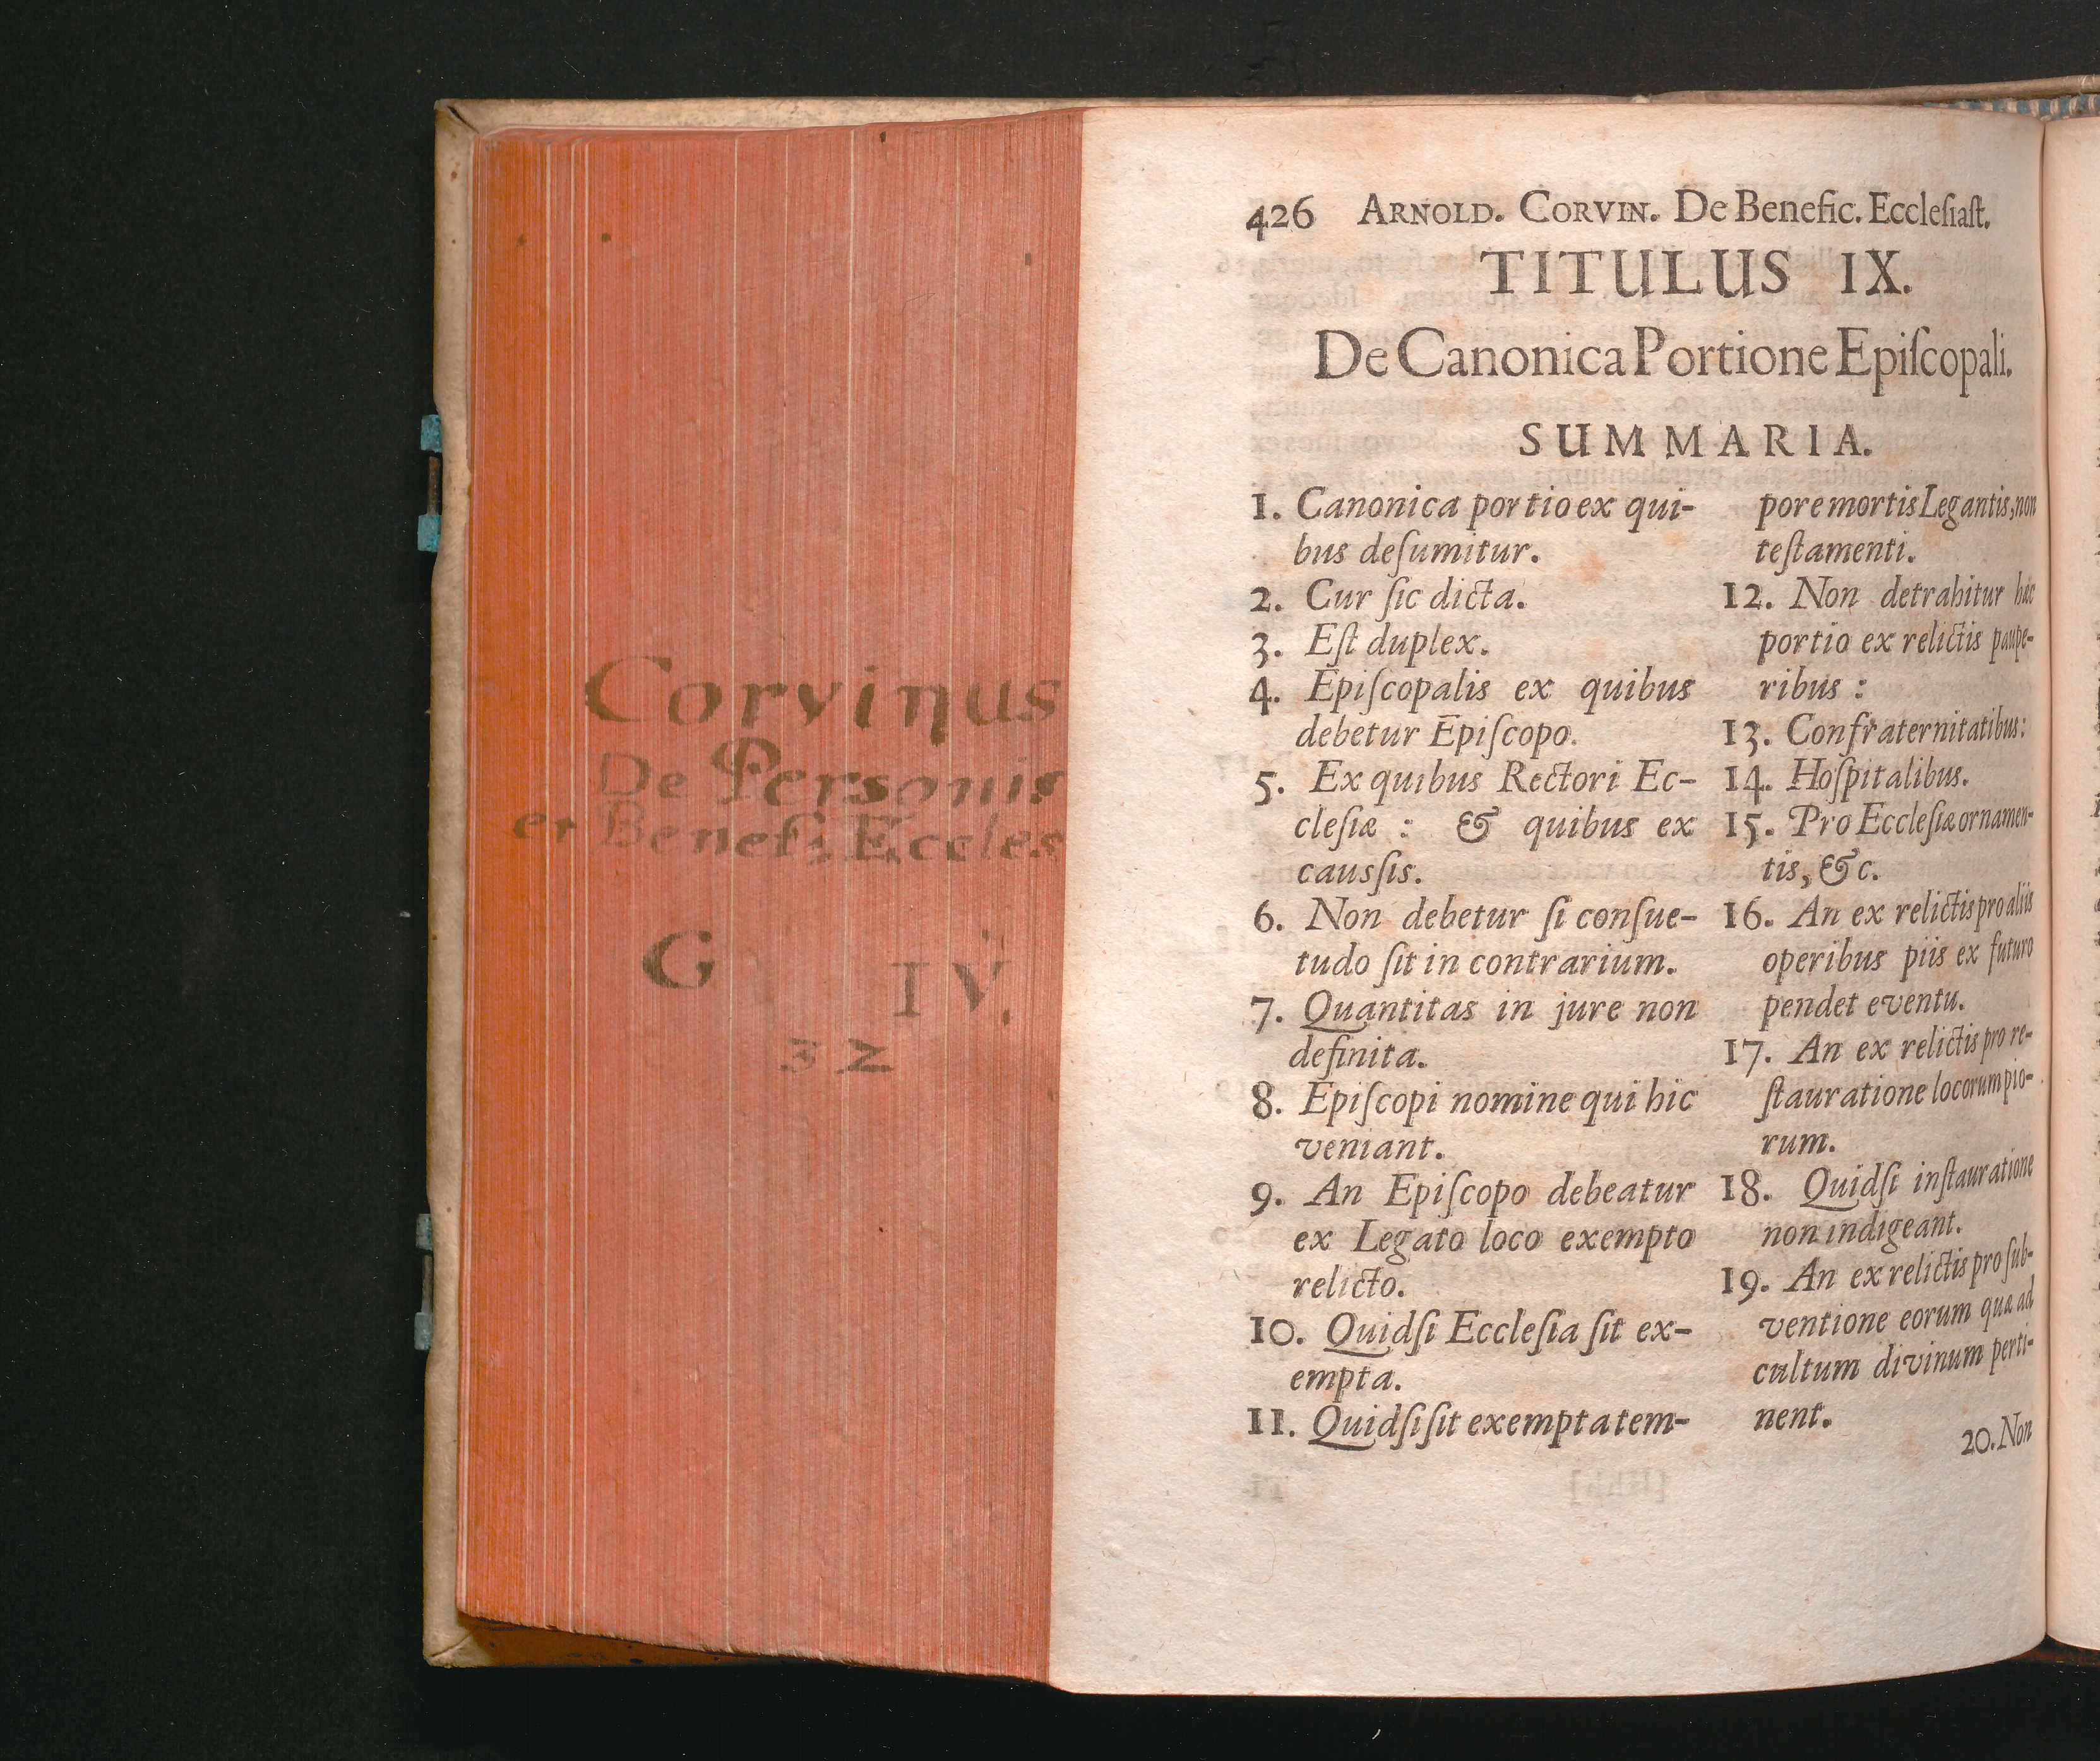 Corvinus
De Personis
et Benef: Eccles
G IV.
32
426 ARNOLD. CORVIN. De Benefic. Eccleſiaſt.
TITULUS IX.
De Canonica Portione Epiſcopali.
SUMMARIA.
1. Canonica portio ex qui-
bus deſumitur.
2. Cur ſic dicta.
3. Eſt duplex.
4. Epiſcopalis ex quibus
debetur Epiſcopo.
5. Ex quibus Rectori Ec-
cleſiæ : & quibus ex
causſis.
6. Non debetur ſi conſue-
tudo ſit in contrarium.
7. Quantitas in jure non
definita.
8. Epiſcopi nomine qui hic
veniant.
9. An Epiſcopo debeatur
ex Legato loco exempto
relicto.
10. Quidſi Eccleſia ſit ex-
empta.
11. Quidſi ſit exempta tem-
pore mortis Legantis, non
teſtamenti.
12. Non detrahitur hæc
portio ex relictis paupe-
ribus :
13. Confraternitatibus:
14. Hoſpitalibus.
15. Pro Eccleſiæ ornamen-
tis, &c.
16. An ex relictis pro aliis
operibus piis ex futuro
pendet eventu.
17. An ex relictis pro re-
ſtauratione locorum pio-
rum.
18. Quidſi inſtauratione
non indigeant.
19. An ex relictis pro ſub-
ventione eorum quæ ad
cultum divinum perti-
nent.
20. Non